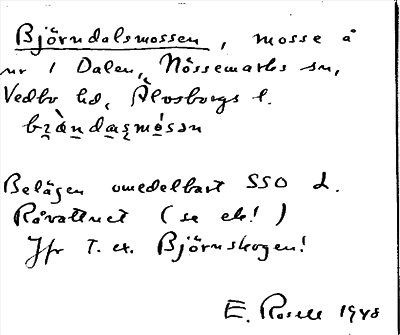 Björndalsmossen, mosse å
nr 1 Dalen, Nössemarks sn,
Vedbo hd, Älvsborgs l.
Belägen omedelbart SSO d.
Råvattnet (se ek!)
Jfr t. ex. Björnskogen!
E. Rosell 1948